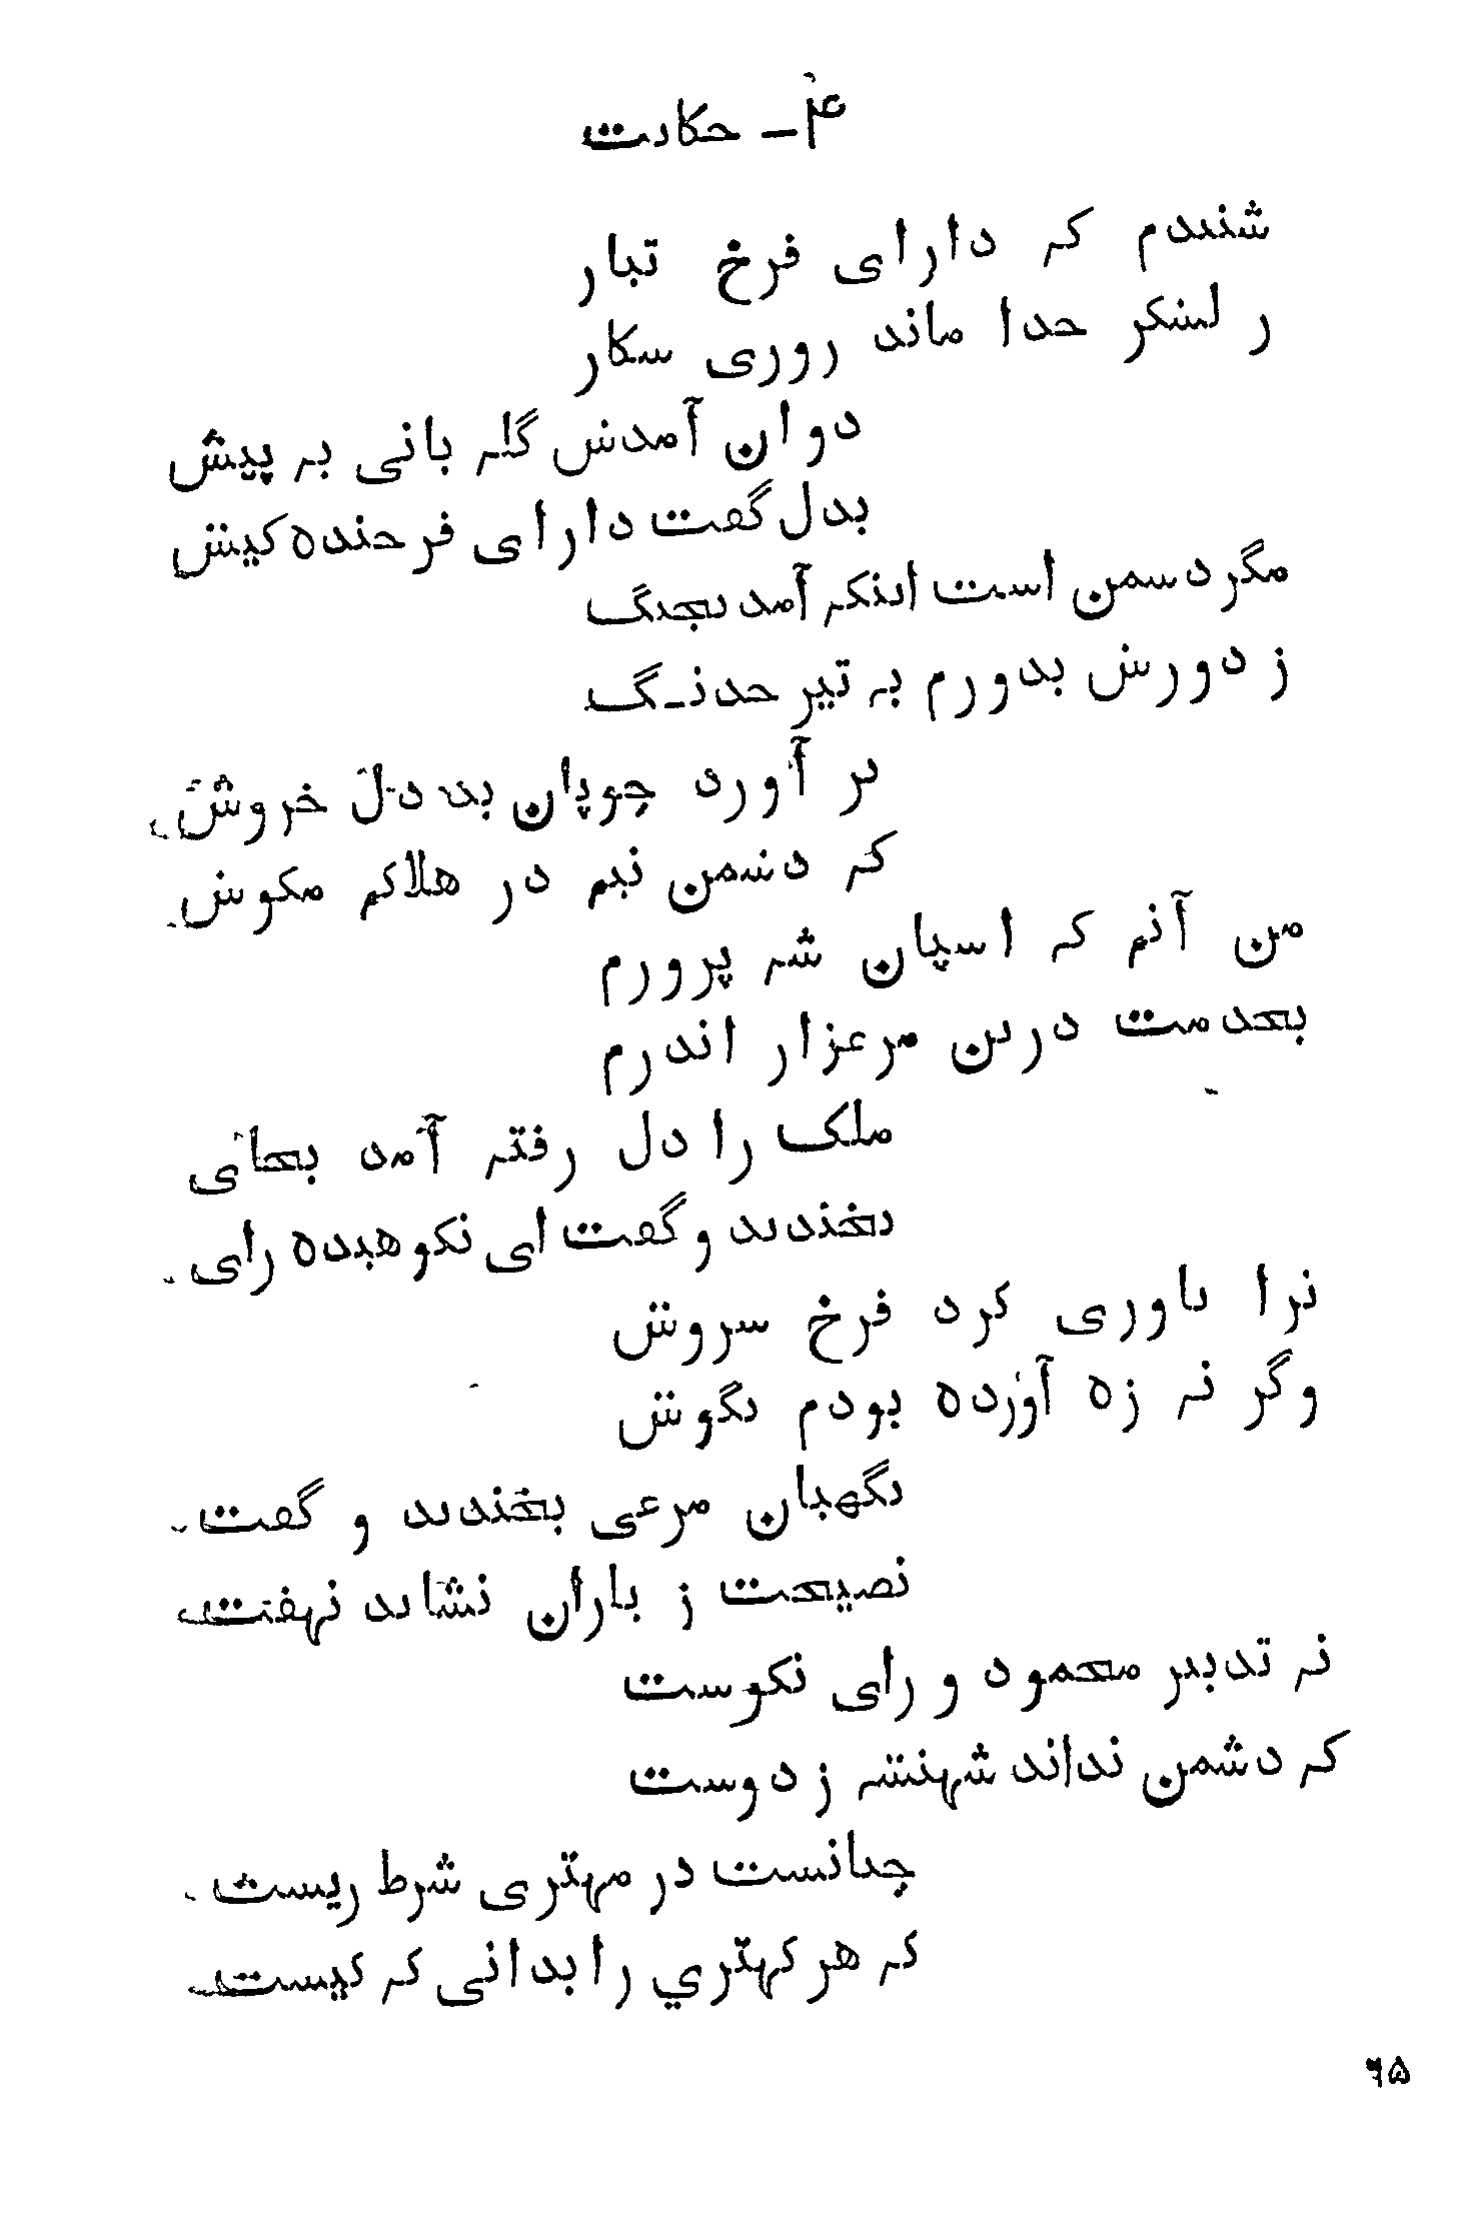 ۴ـ حکایت
شنیدم که دارای فرخ تبار
ز لشکر جدا ماند روزی شکار
دوان آمدش گله بانی به پیش
بدل گفت دارای فرخنده کیش
مگر دشمن است اینکه آمد بجنگ
ز دورش بدوزم به تیر خدنگ
بر آورد چوپان بد دل خروش
که دشمن نیم در هلاکم مکوش
من آنم که اسپان شه پرورم
بخدمت درین مرغزار اندرم
ملک را دل رفته آمد بجای
بخندید و گفت ای نکوهیده رای
ترا یاوری کرد فرخ سروش
وگر نه زه آورده بودم بگوش
نگهبان مرعی بخندید و گفت
نصیحت ز یاران نشاید نهفت
نه تدبیر محمود و رای نکوست
که دشمن نداند شهنشه ز دوست
چنانست در مهتری شرط زیست
که هر کهتری را بدانی که کیست
۶۵